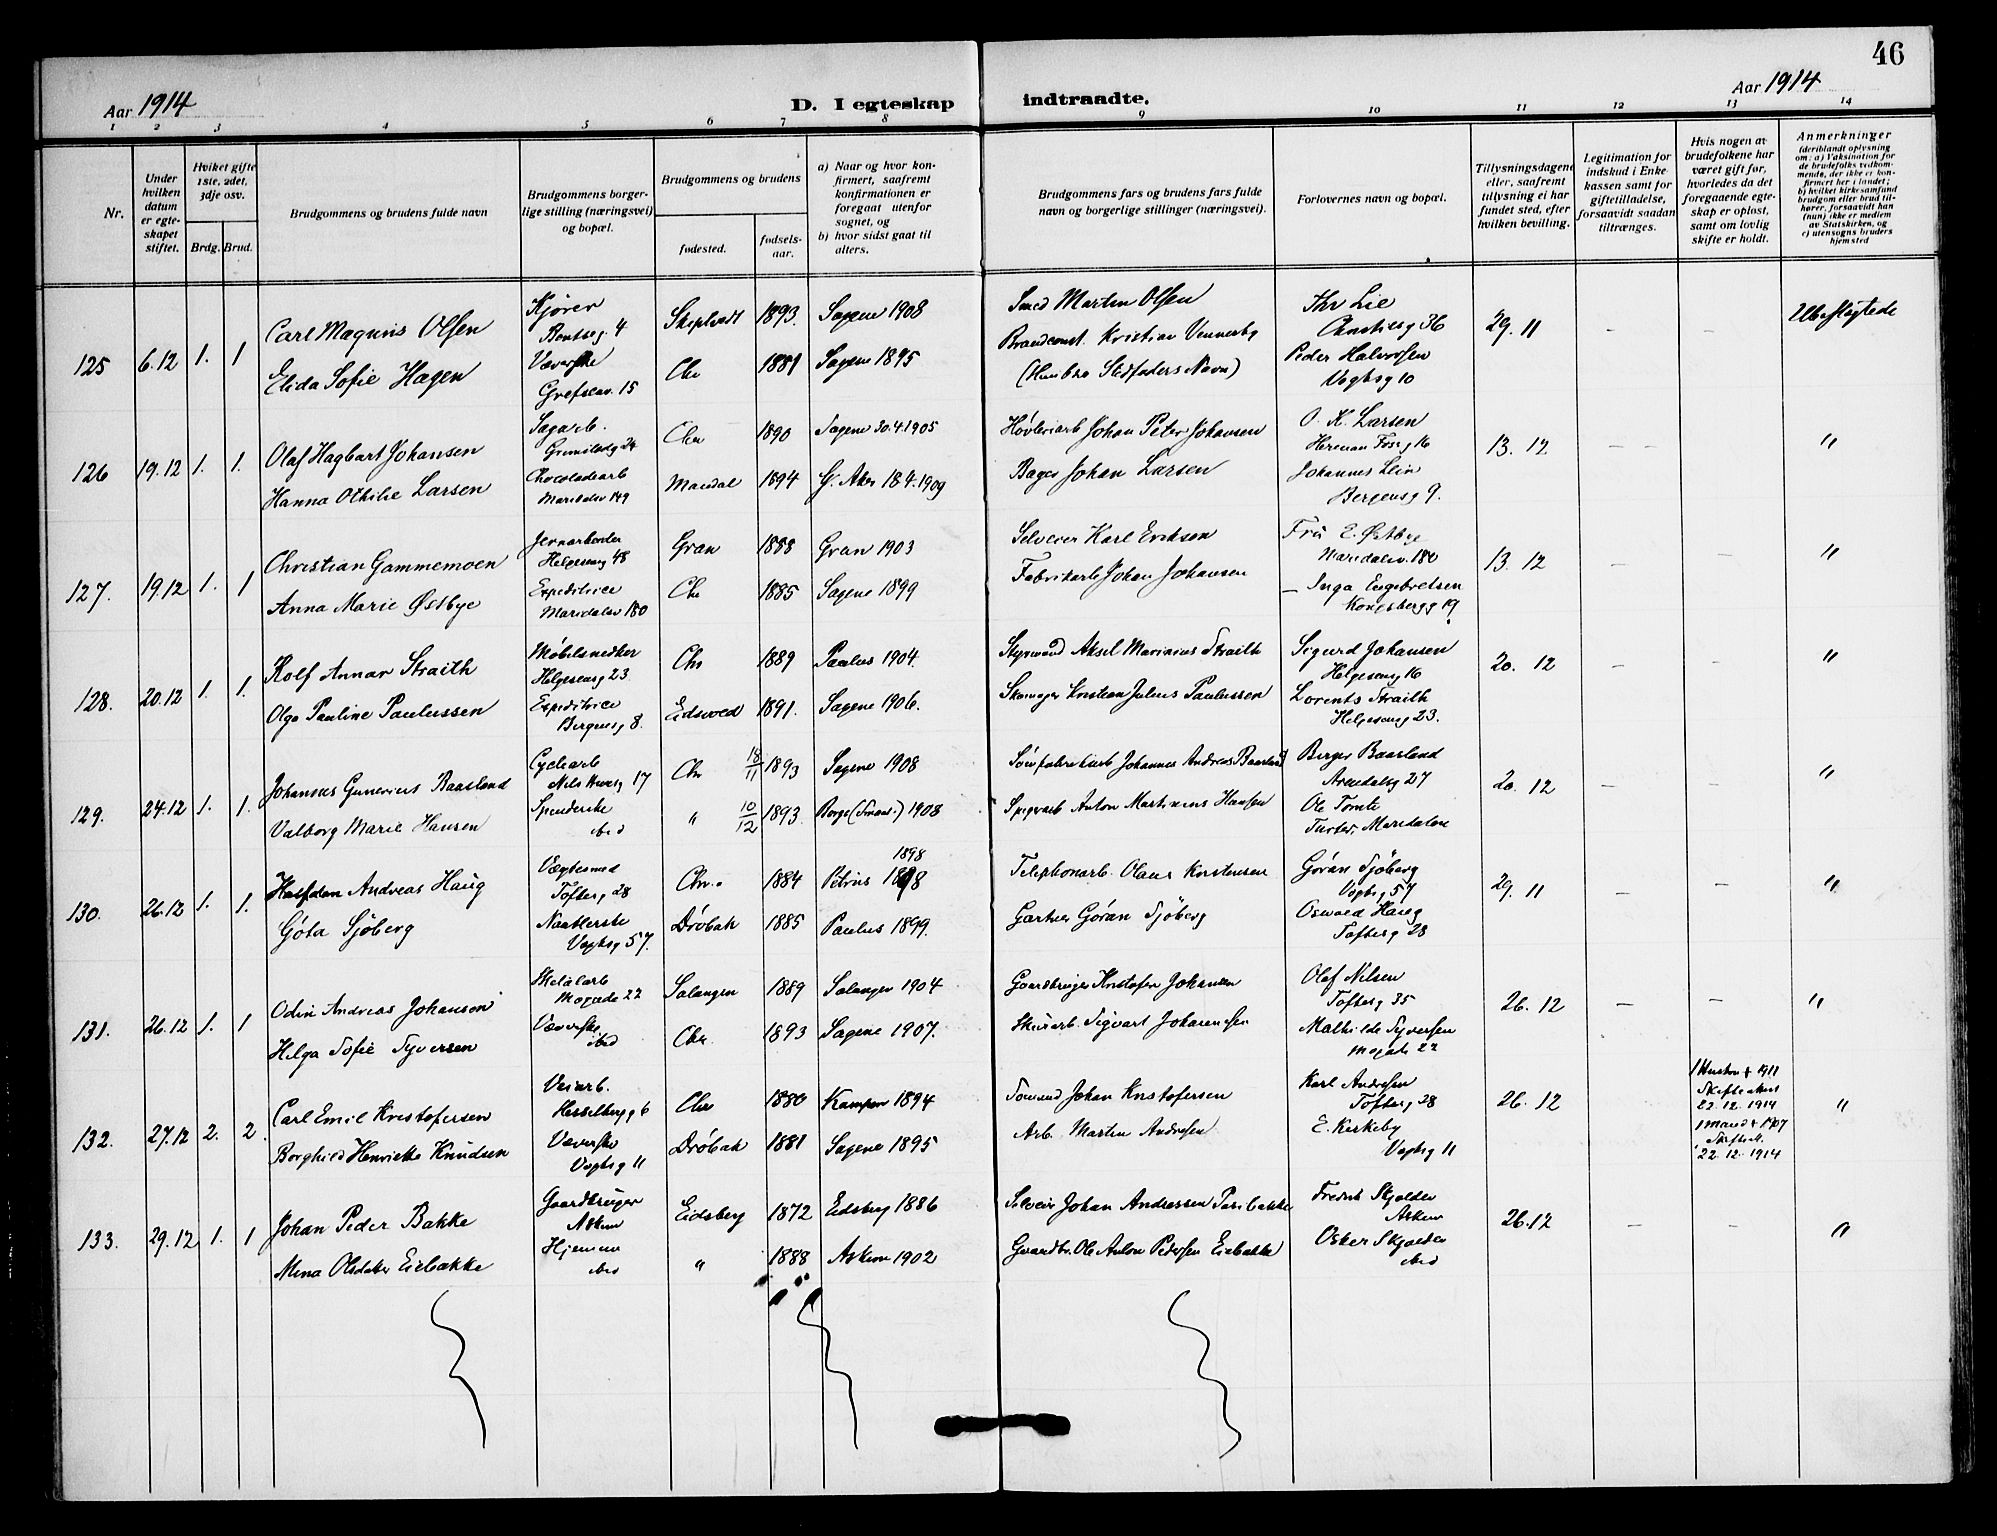 46
Aar 1914
D. I egteskap indtraadte.
Aar 1914
1 2 3 4 5 6 7 8 9 10 11 12 13 14
Nr.
Under hvilken datum er egteskapet stiftet.
Hvilket gifte 1ste, 2det, 3dje osv.
Brdg. Brud.
Brudgommens og brudens fulde navn
Brudgommens borgerlige stilling (næringsvei) og bopæl.
Brudgommens og brudens
fødested.
fødselsaar.
a) Naar og hvor konfirmert, saafremt konfirmationen er foregaat utenfor sognet, og
b) hvor sidst gaat til alters.
Brudgommens fars og brudens fars fulde navn og borgerlige stillinger (næringsvei).
Forlovernes navn og bopæl.
Tillysningsdagene eller, saafremt tillysning ei har fundet sted, efter hvilken bevilling.
Legitimation for indskud i Enkekassen samt for giftetilladelse, forsaavidt saadan tiltrænges.
Hvis nogen av brudefolkene har været gift før, hvorledes da det foregaaende egteskap er opløst, samt om lovlig skifte er holdt.
Anmerkninger (deriblandt oplysning om: a) Vaksination for de brudefolks vedkommende, der ikke er konfirmert her i landet; b) hvilket kirkesamfund brudgom eller brud tilhører, forsaavidt han (hun) ikke er medlem av Statskirken, og c) utensogns bruders hjemsted
125 6.12 1. 1
Carl Magnus Olsen Kjører 4 1893. Sagene 1908 Smed Martin Olsen Thv Lie 36 29.11 Ubeslegtede
Elida Sofie Hagen Væverske Grefsenv. 15 Chr 1881 Sagene 1895 Kristian Vennerby Peder Halvorsen Vogtsg 10
(Hun bær Stedfaders Navn)
126 19.12 1. 1.
Olaf Hagbart Johansen Sagarb. 24 Chr 1890 Sagene 30.4.1905 Høvleriarb Johan Peter Johansen O. K. Larsen Herman Fossg 16 13. 12 "
Hanna Othilie Larsen Chocoladearb Maridalsv 149 Mandal 1894 G. Aker 18.4.1909 Bager Johan Larsen Johannes Lein Bergensg 9.
127. 19.12 1. 1
Christian Gammemoen Jernarbeider Helgesensg 48 Gran 1888 Gran 1903 Selveier Karl Eriksen Fru E. Østbye Maridalsv. 180 13. 12 "
Anna Marie Østbye Expeditrice Maridalsv 180 Chr 1885 Sagene 1899 Fabrikarb Johan Johansen — Inga Engebretsen Kongsbergg 19
128. 20.12 1. 1.
Rolf Annar Straith Møbelsnedker Helgesensg 23. Chr 1889 Paulus 1904. Styrmand Aksel Marinius Straith Sigurd Johansen Helgesensg 16 20. 12 "
Olga Pauline Paulussen Expeditrice Bergensg 8. Eidsvold 1891. Sagene 1906. Skomager Kristian Julius Paulussen Lorents Straith Helgesensg 23.
129. 24.12 1. 1.
Johannes Gunerius Baasland Cyclearb 17 Chr 18/11 1893 Sagene 1908 Johannes Andreas Baasland Birger Baasland Arendalsg 27 20. 12 "
Valborg Marie Hansen Spinderske ibid " 10/12 1893 Borge (Smaal.) 1908 Spigerarb Anton Martinius Hansen Ole Tomte Maridalen
130. 26.12 1. 1.
Halfdan Andreas Haug Vægtesmed Toftesg 28 Chr. 1884 Petrus 1898 1898 Telephonarb. Olaus Kristensen Göran Sjöberg Vogtsg 57 29. 11 "
Göta Sjöberg Naatlerske Vogtsg 57. Drøbak 1885 Paulus 1899. Gartner Göran Sjöberg Oswald Haug Toftesg 28
131. 26.12 1. 1
Odin Andreas Johansen Metalarb Mogade 22 Salangen 1889 Salangen 1904 Gaardbruger Kristofer Johansen Olaf Nilsen Toftesg 35 26.12 "
Helga Sofie Syversen Væverske ibid Chr. 1893 Sagene 1907. Sigvart Johannesen Mathilde Syversen Mogade 22
132. 27.12 2. 2.
Carl Emil Kristofersen Veiarb. Hesselbergg 6 Chr 1880 Kampen 1894 Sømand Johan Kristofersen Karl Andresen Toftesg 28 26.12 1 Hustru † 1911 Skifteattest 22.12.1914 "
Borghild Henriette Knudsen Væverske Vogtsg 11 Drøbak 1881 Sagene 1895 Arb. Martin Andresen E. Kirkeby Vogtsg 11 1 Mand † 1907 Skifteatt. 22.12.1914
133. 29.12 1. 1
Johan Peder Bakke Gaardbruger Askim Eidsberg 1872 Eidsberg 1886 Selveier Johan Andreassen Fredrik Skjolden Askim 26.12 "
Mina Olsdatter Eiebakke Hjemme ibid " 1888 Askim 1902 Gaardbr. Ole Anton Pedersen Eiebakke Oskar Skjolden ibid